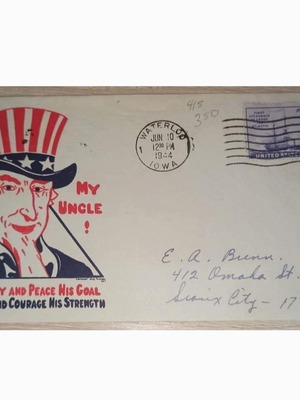 415
350
WATERLOO
JUN 10
12 PM
1944
1
IOWA
UNITED STATES
MY
UNCLE
!
Y AND PEACE HIS GOAL
ND COURAGE HIS STRENGTH
E. A. Bunn.
412 Omaha St.
Sioux City - 17